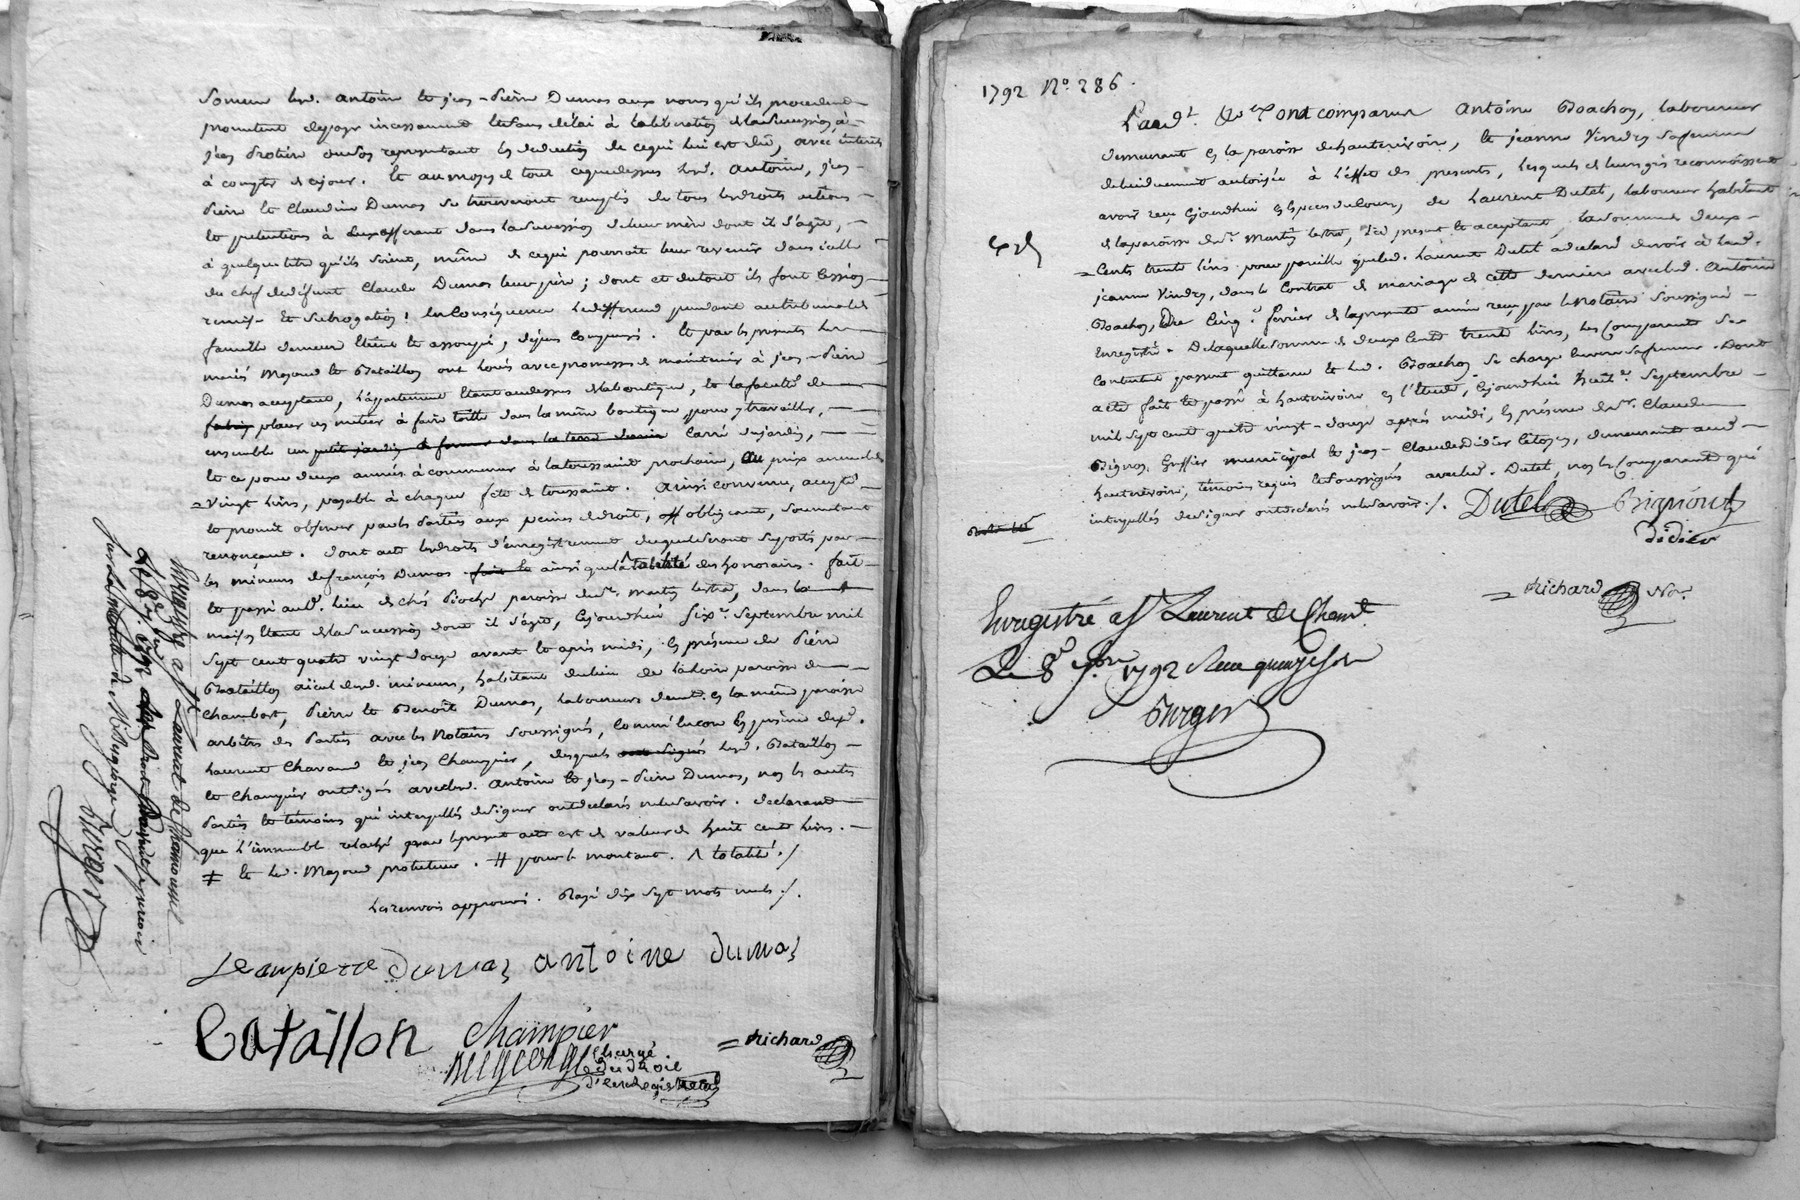 somme led. Antoine et jean-Pierre Dumas aux noms qu'ils procedent
promettent de payer incessamment et sans délai à la libération de la succession, à
jean
à compter de ce jour. Et au moyen de tout ce que dessus led. Antoine, jean-
Pierre et Claudine Dumas se trouveront remplis de tous les droits actions
et prétentions à eux afférant dans la succession de leur mère dont il s'agit,
à quelque titre qu'ils soient, même de ce qui pourroit leur revenir dans icelle
du chef de défunt Claude Dumas leur père; dont et du tout ils font cession
remise et subrogation; en conséquence le différend pendant au tribunal de
famille demeure éteint et assoupi, dépens compensés. Et par les présentes les
mariés Mayoud et Bataillon ont loués avec promesse de maintenir à jean-Pierre
Dumas acceptant, l'appartement étant au dessus de la boutique, et la faculté de
placer un métier à faire toille dans la même boutique, pour y travailler,
ensemble un carré du jardin,
et ce pour deux années à commencer à la toussaint prochaine, au prix annuel de
vingt livres, payable à chaque fête de toussaint. Ainsi convenu, accepté
et promit observer par les parties aux peines de droit, obligeant, soumettant
renonçant. Dont acte les droits d'enregistrement duquel seront suportés par
les mineurs de françois Dumas ainsi que la des honoraires. fait
et passé aud. lieu de chés Pioche paroisse de St. Martin Lestra, dans la
maison étant de la succession dont il s'agit, cejourdhui six Septembre mil
sept cent quatre vingt douze avant et après midi, en présence de Pierre
Bataillon aïeul desd. mineurs, habitant du lieu de paroisse de
Chambost, Pierre et Benoît Dumas, laboureurs demt. en la même paroisse
arbitres des parties avec les Notaires soussignés, comm' encore en présence de
Laurent Chavand et jean Champier, desquels led. Bataillon
et Champier ont signés avec led. Antoine et jean-Pierre Dumas, non les autres
parties et témoins qui interpellés de signer ont déclarés ne le savoir. déclarant
que l'immeuble relaché par le present acte est de valeur de huit cent livres.
≠ et led. Mayoud protuteur. # pour le montant. Λ totalité ./
les renvois approuvés. Rayé dix sept mots nuls ./.
Jean pierre dumas antoine dumas
Batâillon champier
chargé
du droit
d'enregistrement
= Richard
Enregistré à St. Laurent de Chamousset
Le 8 7bre 1792
Burger
1792 N.º 286.
L'an d.t & ont comparus Antoine Boachon, laboureur
demeurant en la paroisse de hauterivoire, et jeanne Vindry sa femme
de lui duement autorisée à l'effet des presentes, lesquels de leurs grés reconnoissent
avoir reçu cejourdhui en espèces de cours, de Laurent Dutel, laboureur habitant
de la paroisse de St. Martin Lestra, ici present et acceptant, la somme de deux
cents trente livres pour pareille que led. Laurent Dutel a déclaré devoir à lad.
jeanne Vindry, dans le Contrat de mariage de cette dernière avec led. Antoine
Boachon, du cinq février de la presente année reçu par le Notaire soussigné
enregistré. De laquelle somme de deux cents trente livres, les comparants se
contentent passent quittance et led. Boachon se charge envers sa femme. Dont
acte fait et passé à hauterivoire en l'étude, cejourdhui huit Septembre
mil sept cent quatre vingt-douze après midi, en présence de Sr. Claude
Bignon, Greffier municipal et jean-Claude Didier Citoyen, demeurants aud.
hauterivoire, témoins requis et soussignés avec led. Dutel, non les Comparants qui
interpellés de signer ont déclarés ne le savoir ./. Dutel Bignon
Didier
= Richard No.re
Enregistré à St Laurent de Cham.t
Le 8 7bre 1792 Reçu quinze sols
Burger